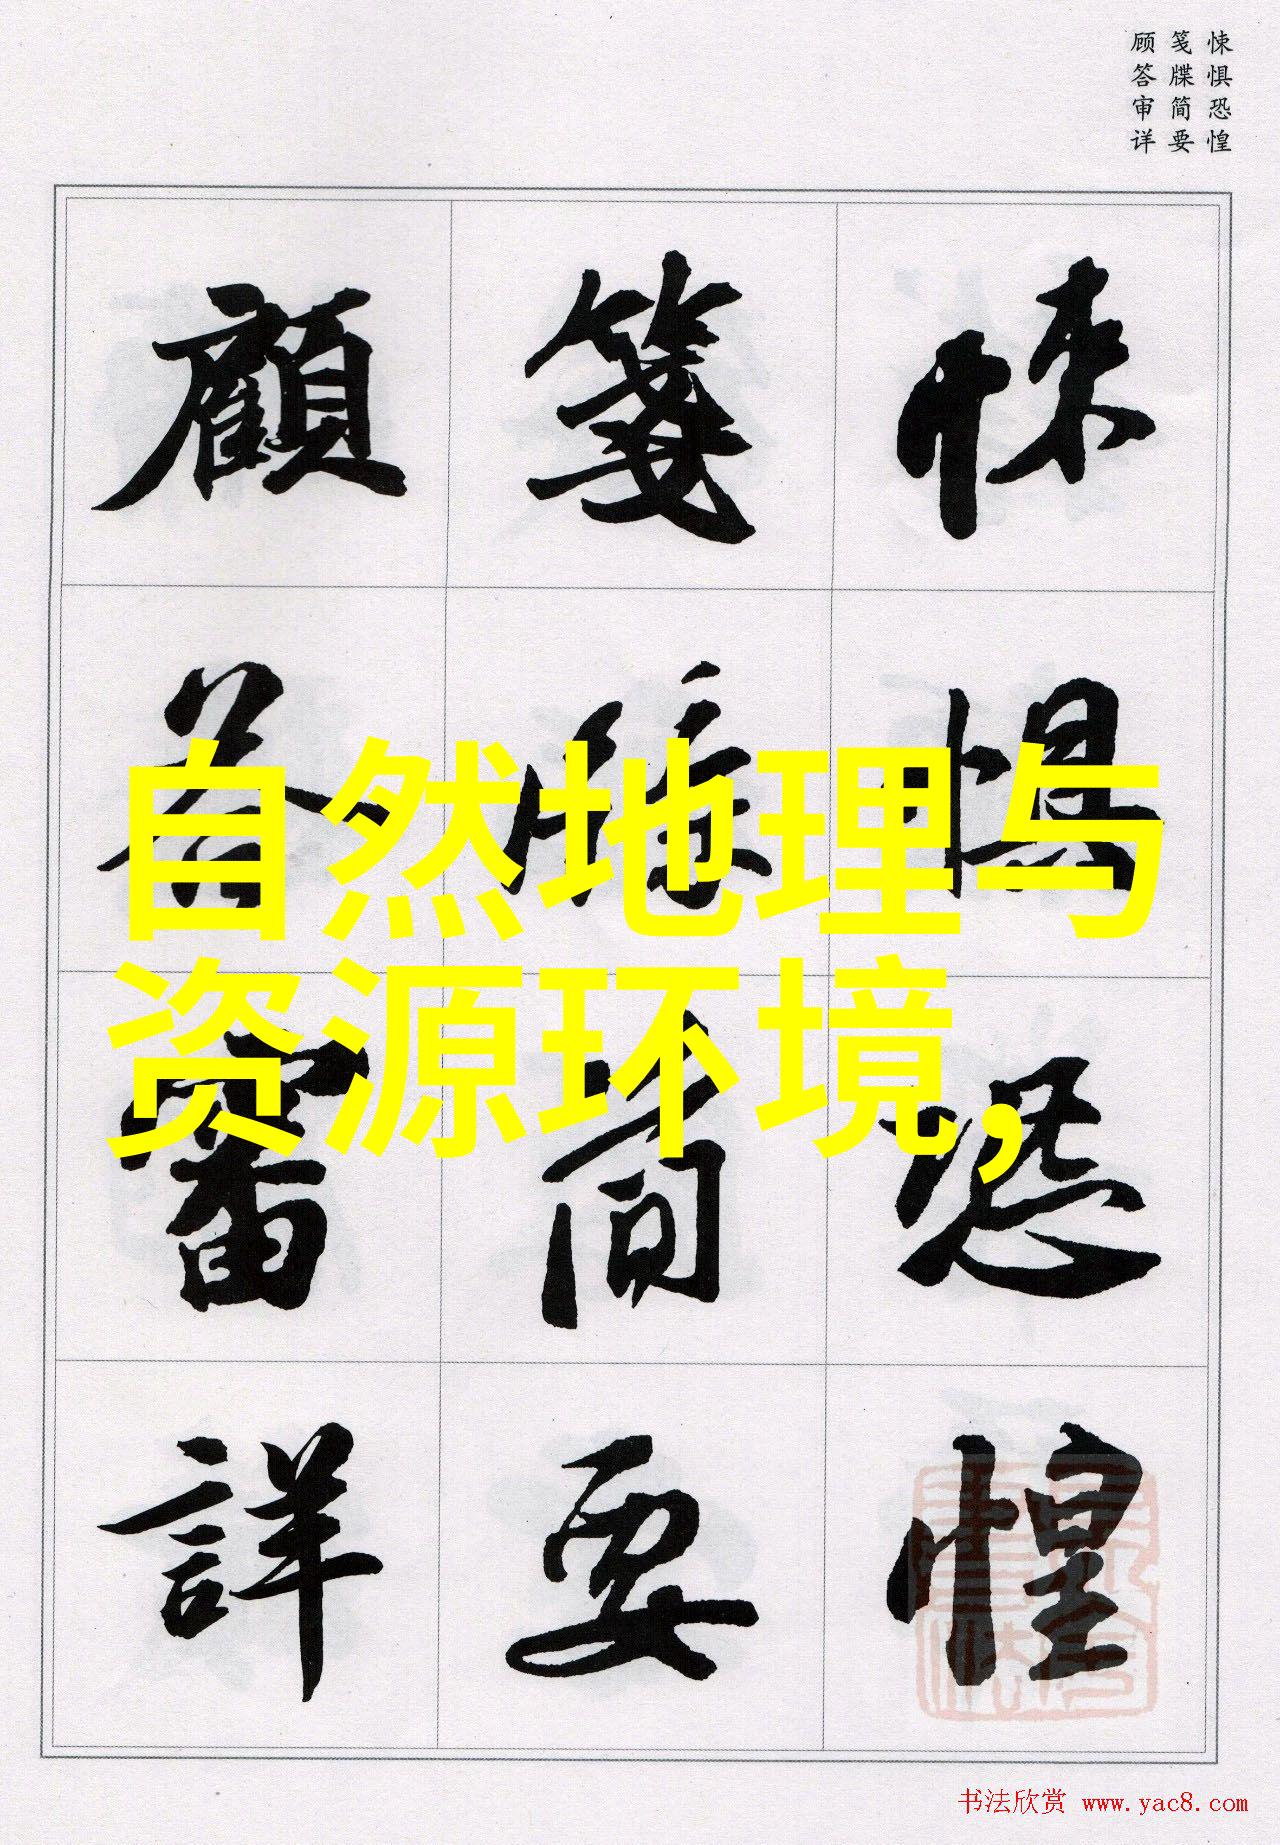 悚惧恐惶
笺牒简要
顾答审详
悚懼恐惶
箋牒簡要
顧答審詳
自然地理与
资源环境,
书法欣赏 www.yac8.com